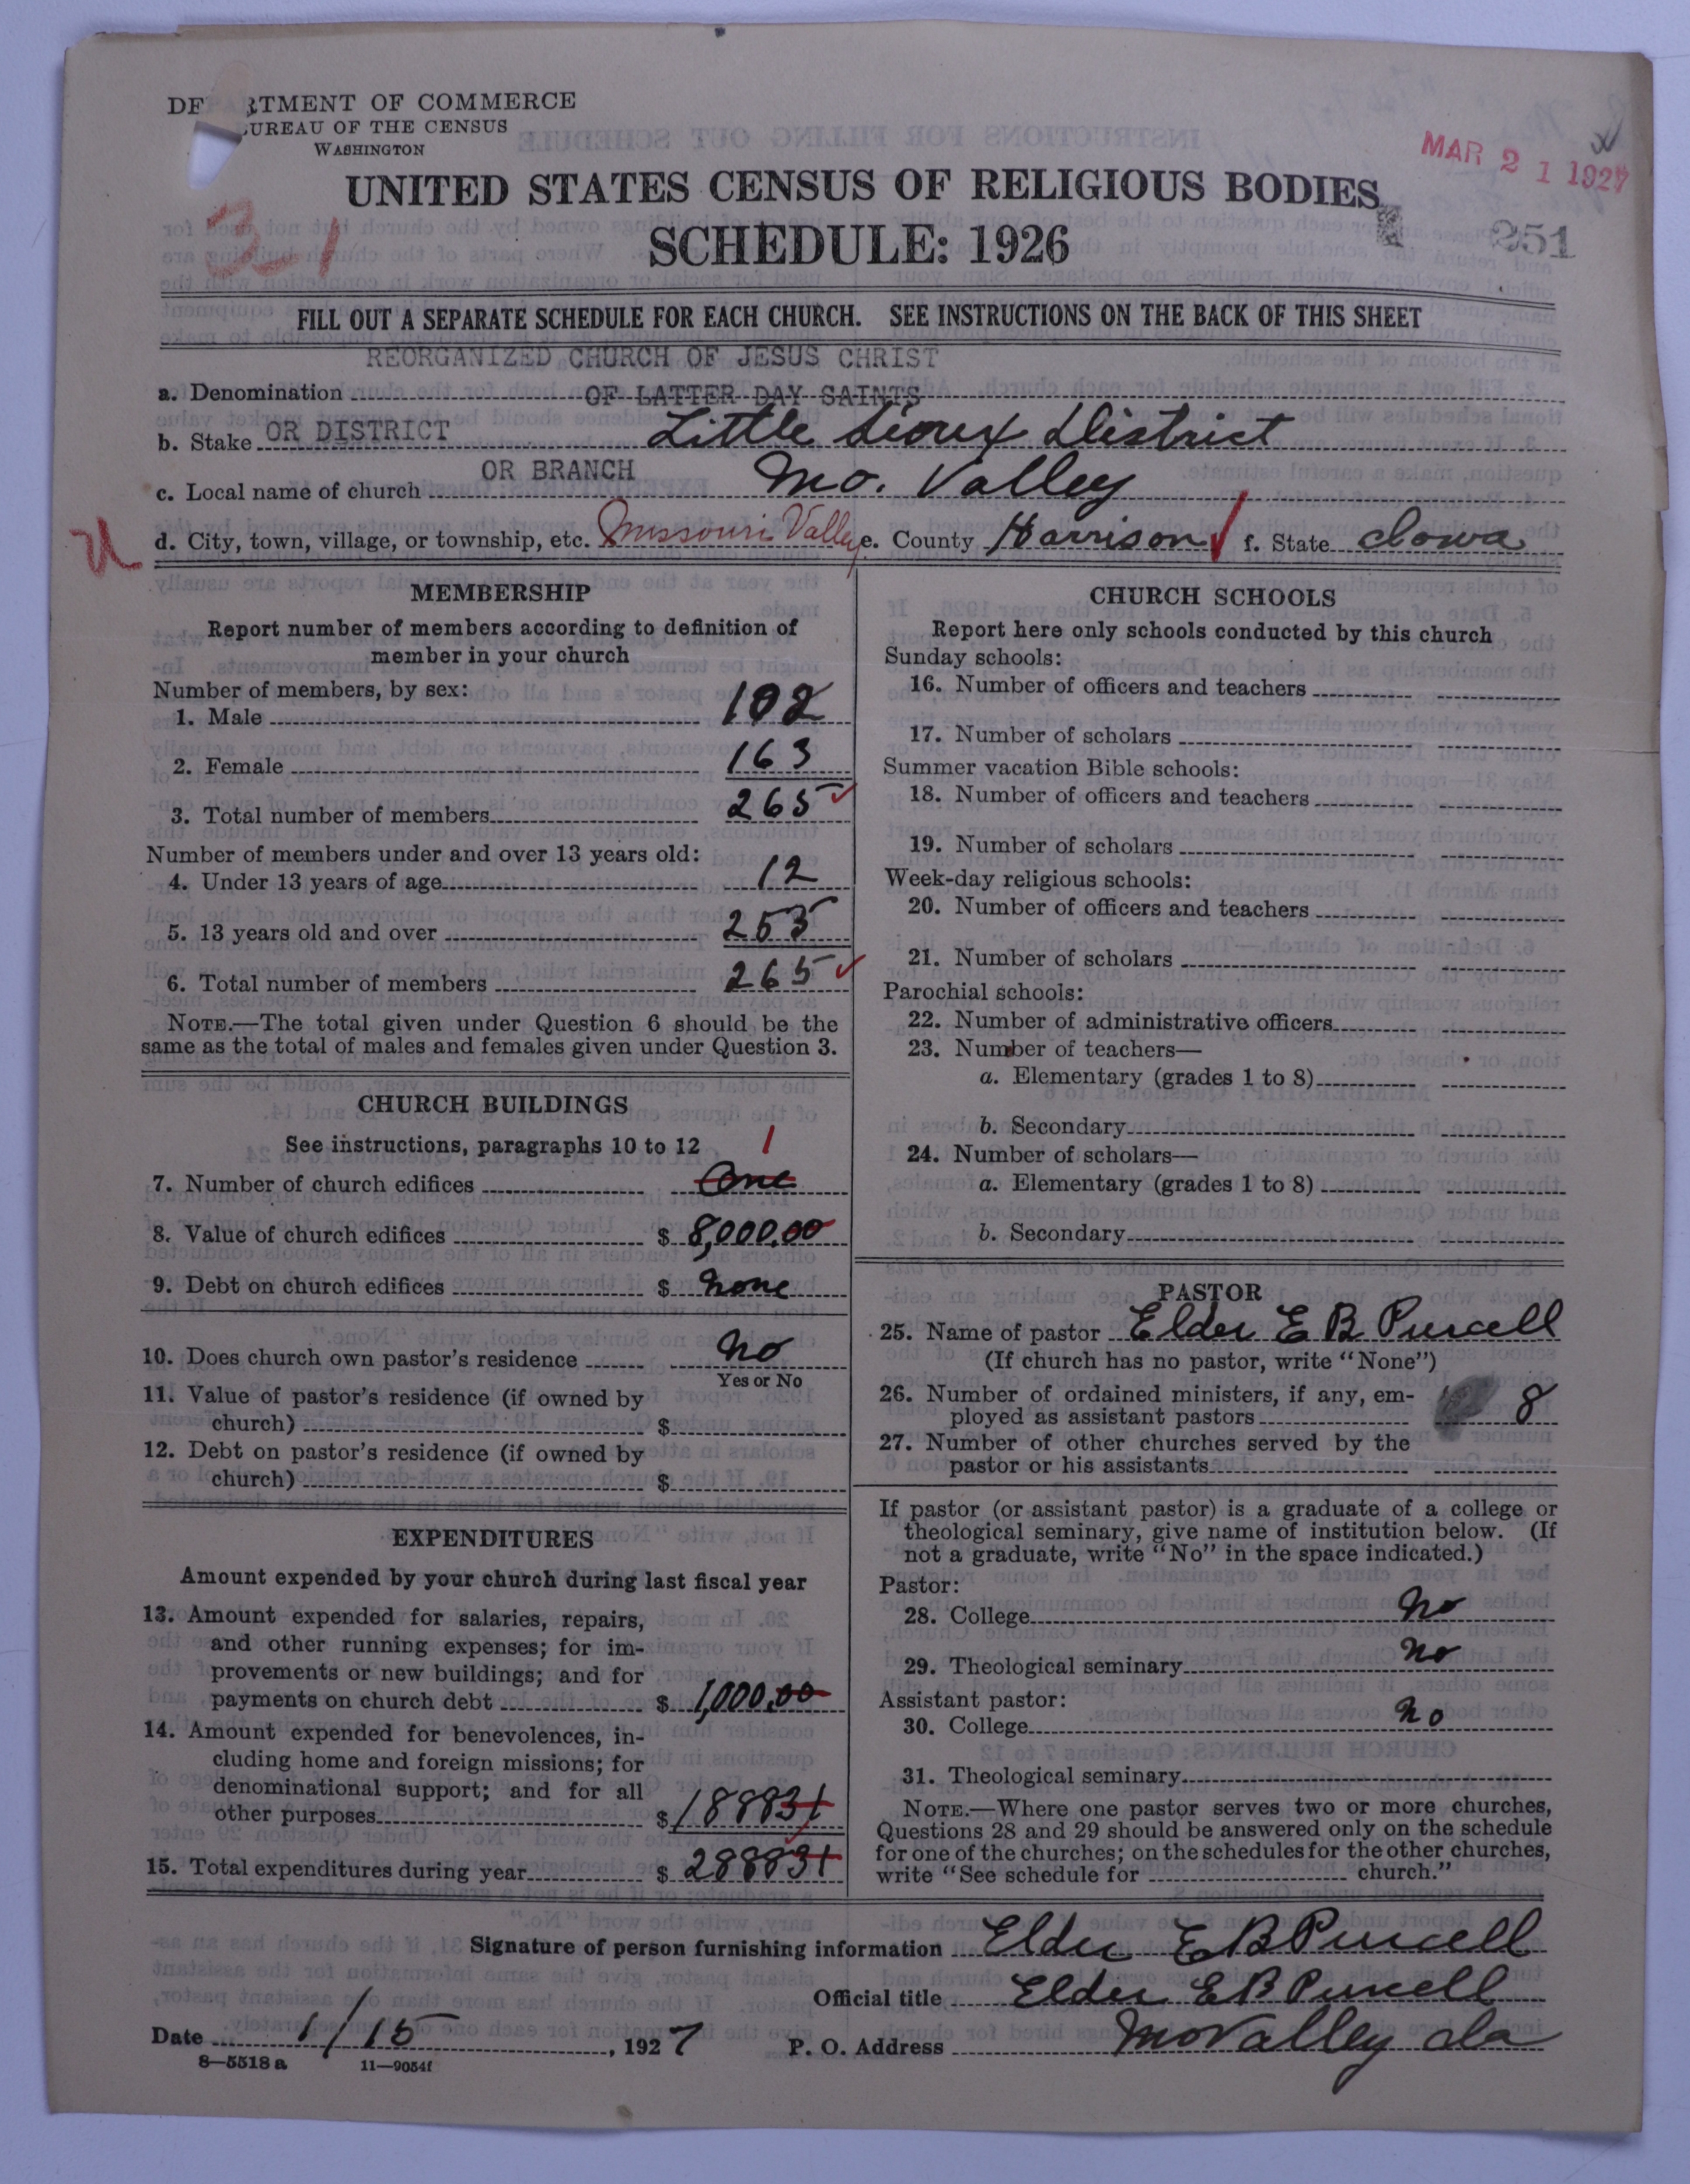 DEPARTMENT OF COMMERCE
BUREAU OF THE CENSUS
WASHINGTON
MAR 21 1927
UNITED STATES CENSUS OF RELIGIOUS BODIES
SCHEDULE: 1926
251
FILL OUT A SEPARATE SCHEDULE FOR EACH CHURCH. SEE INSTRUCTIONS ON THE BACK OF THIS SHEET
REORGANIZED CHURCH OF JESUS CHRIST
a. Denomination OF LATTER DAY SAINTS
b. Stake OR DISTRICT Little Sioux District
OR BRANCH
c. Local name of church Mo. Valley
d. City, town, village, or township, etc. Missouri Valley e. County Harrison f. State Iowa
MEMBERSHIP
Report number of members according to definition of
member in your church
Number of members, by sex:
1. Male 102
2. Female 163
3. Total number of members 265
Number of members under and over 13 years old:
4. Under 13 years of age 12
5. 13 years old and over 253
6. Total number of members 265
NOTE.—The total given under Question 6 should be the
same as the total of males and females given under Question 3.
CHURCH BUILDINGS
See instructions, paragraphs 10 to 12
1
7. Number of church edifices One
8. Value of church edifices $ 8,000.00
9. Debt on church edifices $ None
10. Does church own pastor's residence No
Yes or No
11. Value of pastor's residence (if owned by
church) $
12. Debt on pastor's residence (if owned by
church) $
EXPENDITURES
Amount expended by your church during last fiscal year
13. Amount expended for salaries, repairs,
and other running expenses; for im-
provements or new buildings; and for
payments on church debt $ 1,000.00
14. Amount expended for benevolences, in-
cluding home and foreign missions; for
denominational support; and for all
other purposes $ 188831
15. Total expenditures during year $ 288831
CHURCH SCHOOLS
Report here only schools conducted by this church
Sunday schools:
16. Number of officers and teachers
17. Number of scholars
Summer vacation Bible schools:
18. Number of officers and teachers
19. Number of scholars
Week-day religious schools:
20. Number of officers and teachers
21. Number of scholars
Parochial schools:
22. Number of administrative officers
23. Number of teachers—
a. Elementary (grades 1 to 8)
b. Secondary
24. Number of scholars—
a. Elementary (grades 1 to 8)
b. Secondary
PASTOR
25. Name of pastor Elder E B Purcell
(If church has no pastor, write "None")
26. Number of ordained ministers, if any, em-
ployed as assistant pastors 8
27. Number of other churches served by the
pastor or his assistants
If pastor (or assistant pastor) is a graduate of a college or
theological seminary, give name of institution below. (If
not a graduate, write "No" in the space indicated.)
Pastor:
28. College No
29. Theological seminary No
Assistant pastor:
30. College No
31. Theological seminary
NOTE.—Where one pastor serves two or more churches,
Questions 28 and 29 should be answered only on the schedule
for one of the churches; on the schedules for the other churches,
write "See schedule for church."
Signature of person furnishing information Elder E B Purcell
Official title Elder E B Purcell
Date 1/15, 1927 P. O. Address Mo Valley Ia
8—5518 a 11—9054f